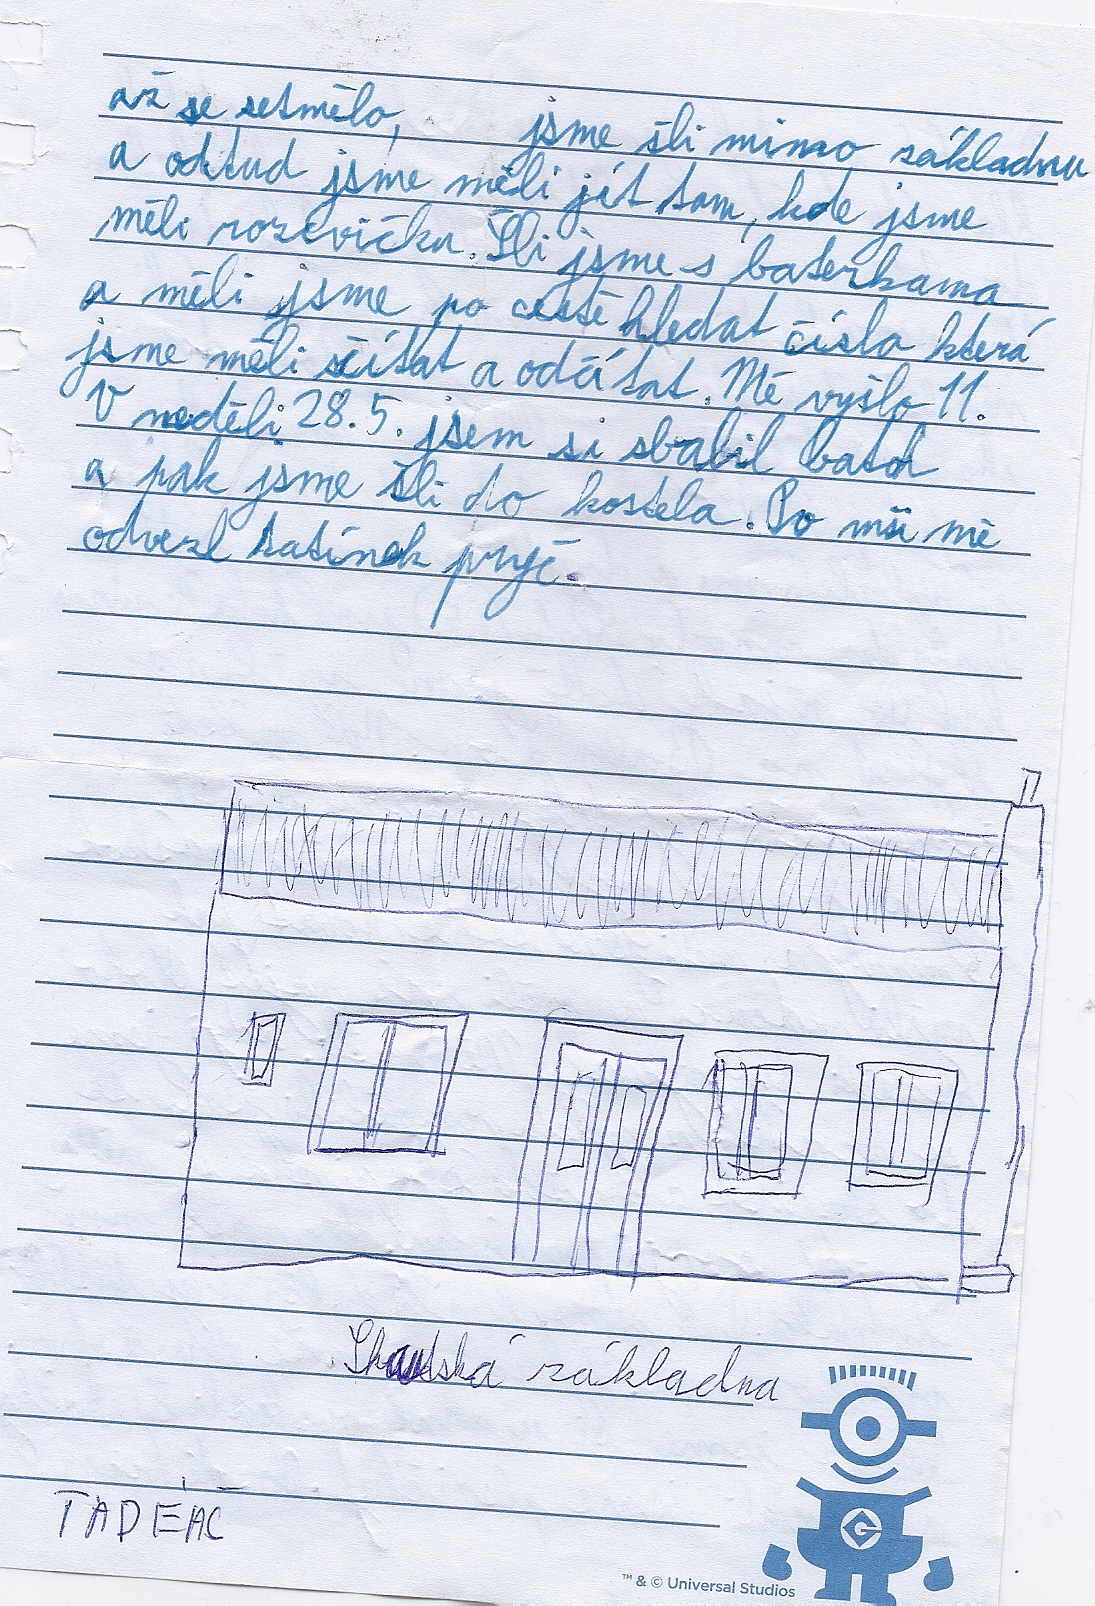 až se setmělo, jsme šli mimo základnu
a odtud jsme měli jít tam, kde jsme
měli rozcvičku. Šli jsme s baterkama
a měli jsme po cestě hledat čísla která
jsme měli sčítat a odčítat. Mě vyšlo 11.
V neděli 28.5. jsem si sbalil batoh
a pak jsme šli do kostela. Po mši mě
odvezl tatínek pryč.
Skautská základna
TADEÁČ
G
™ & © Universal Studios